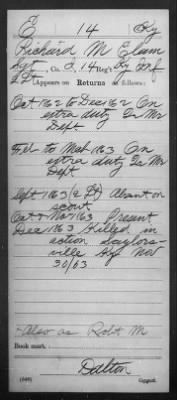 E 14 Ky
Richard M Elam
Sgt, Co. E, 14 Reg't Ky Inf
2 Lt
(Appears on Returns as follows:
Oct 1862 to Dec 1862 On
extra duty Qr Mr
Dept
Feb to Mch 1863 On
extra duty Qr Mr
Dept
Sept 1863 (2 Lt) Absent on
scout
Oct & Nov 1863 Present
Dec 1863 Killed in
action Saylors-
ville Ky Nov
30/63
*Also as Robt M
Book mark:
Dalton
Copyist.